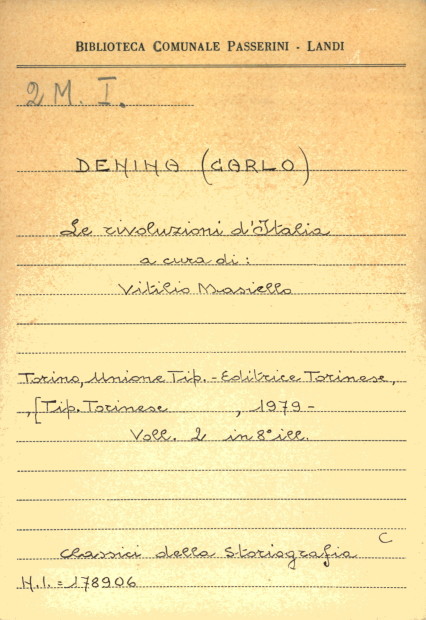 BIBLIOTECA COMUNALE PASSERINI - LANDI
2 M. I.
DENINA (CARLO)
Le rivoluzioni d'Italia
a cura di:
Vitilio Masiello
Torino, Unione Tip. - Editrice Torinese,
,[Tip. Torinese , 1979 -
Voll. 2 in 8° ill.
C
Classici della Storiografia
N.I. = 178906